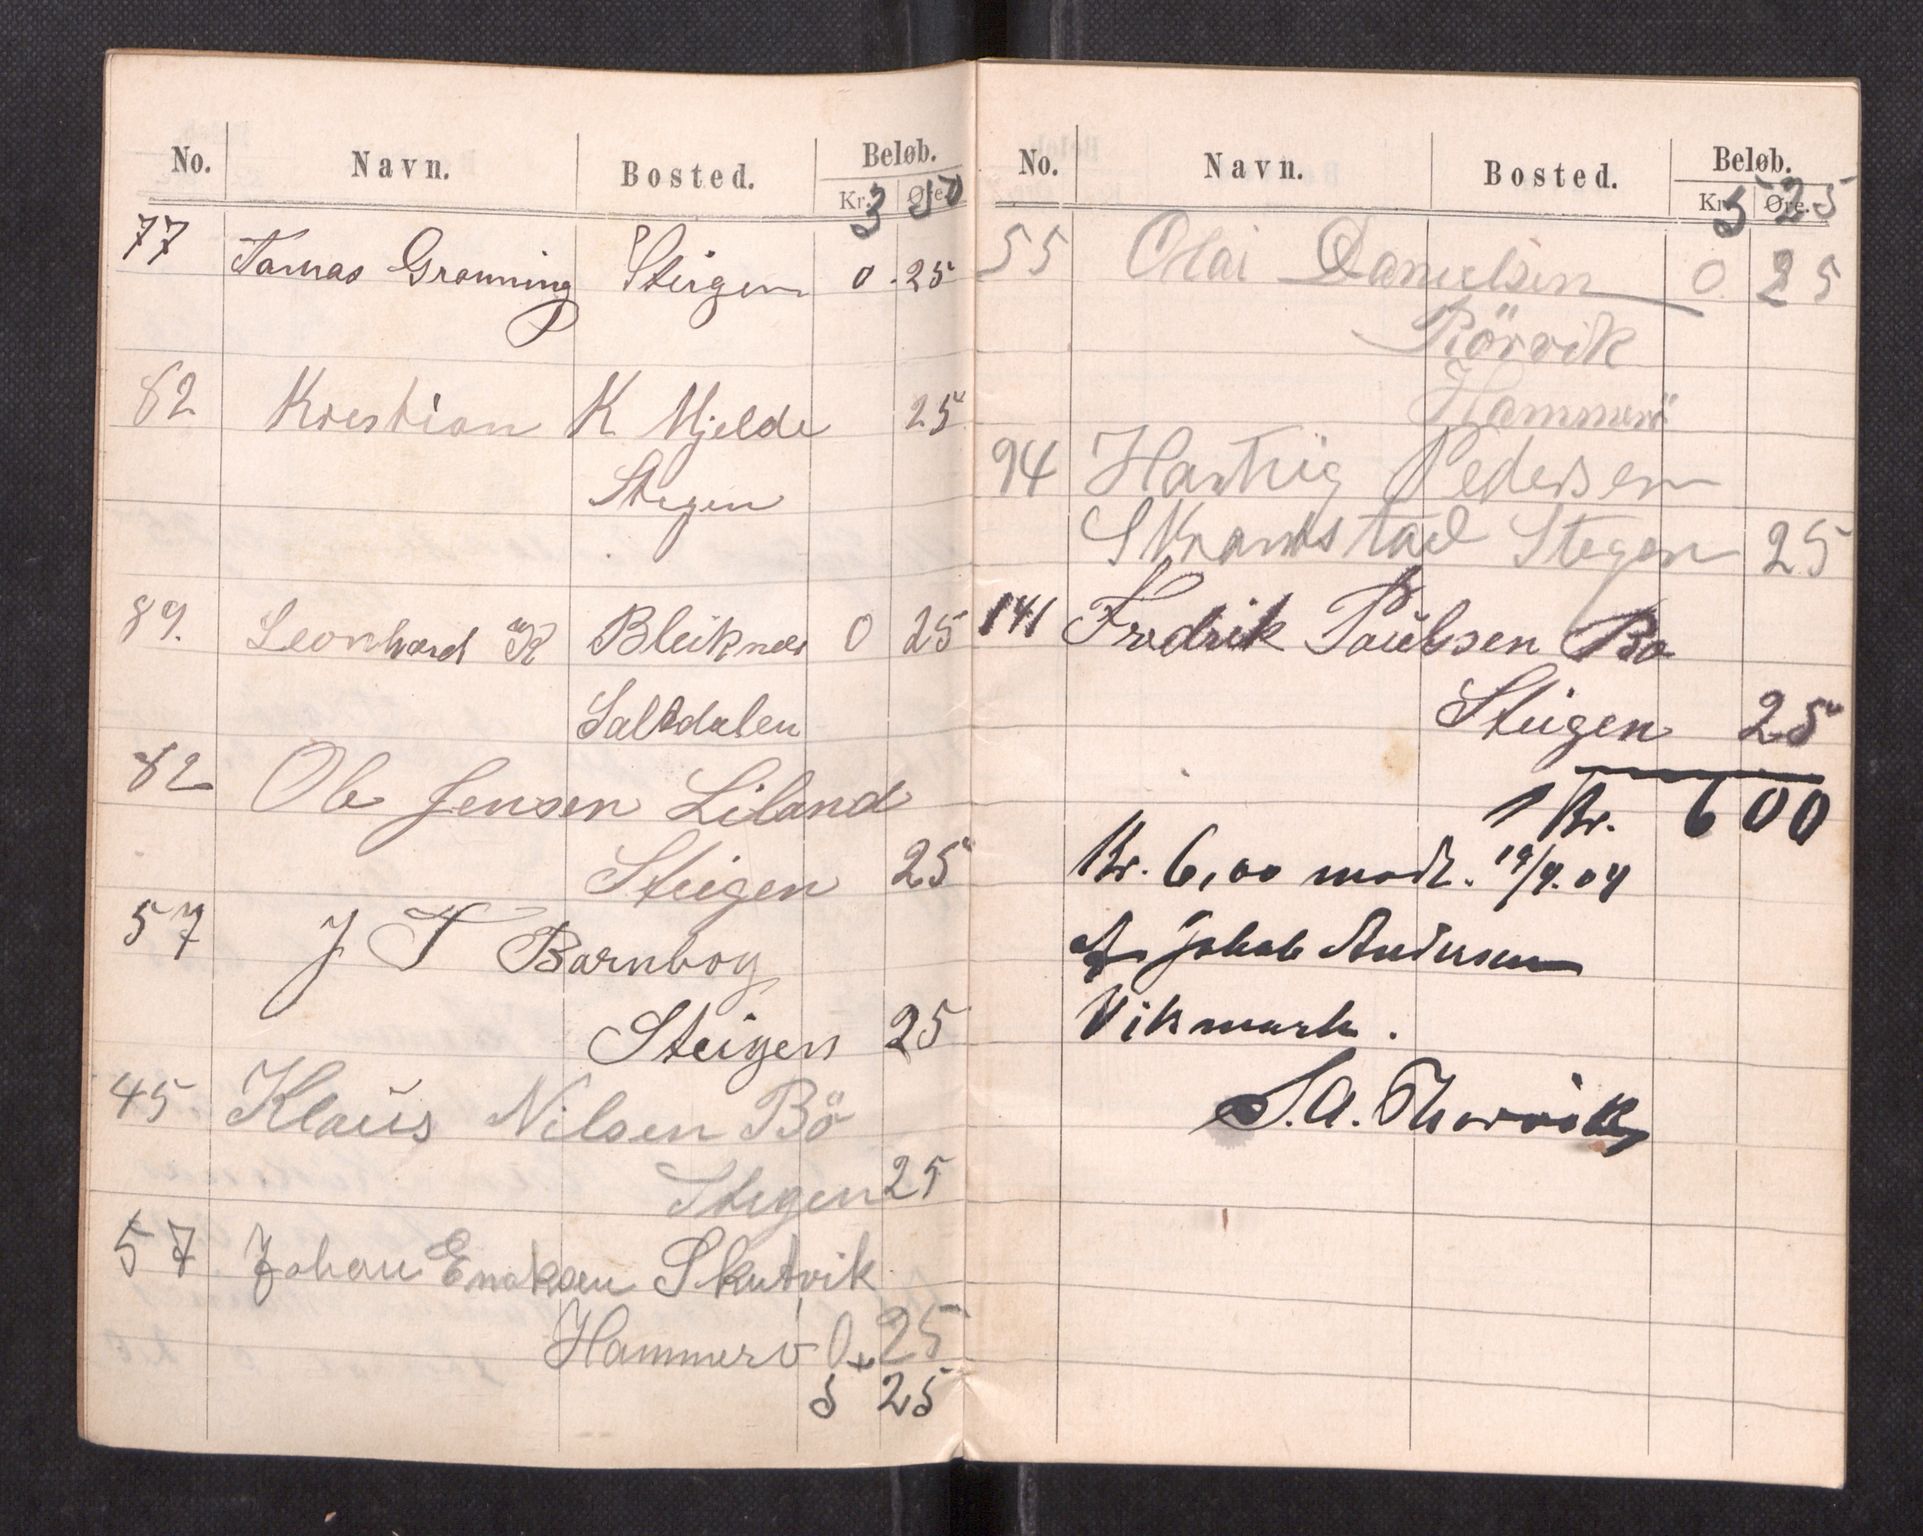 No. Navn. Bosted. Beløb.
Kr. Øre.
3 50
77 Tomas Grønning Steigen 0.25
82 Krestian K Mjelde 25
Stegen
89. Leonhard K Bleiknes 0 25
Saltdalen
82 Ole Jensen Liland
Steigen 25
57 J T Barnbog
Steigen 25
45 Klaus Nilsen Bö
Stegen 25
57 Johan Enoksen Skutvik
Hammerö 0 25
5 25
No. Navn. Bosted. Beløb.
Kr. Øre.
5 25
55 Olai Danielsen 0. 25
Rörvik
Hammerö
94 Hartvig Pedersen
Skramstad Stegen 25
141 Fredrik Paulsen Bø
Steigen 25
Kr. 600
Kr. 6,00 modt. 19/9.04
af Jakob Andersen
Vikmark.
S. A. Thorvik